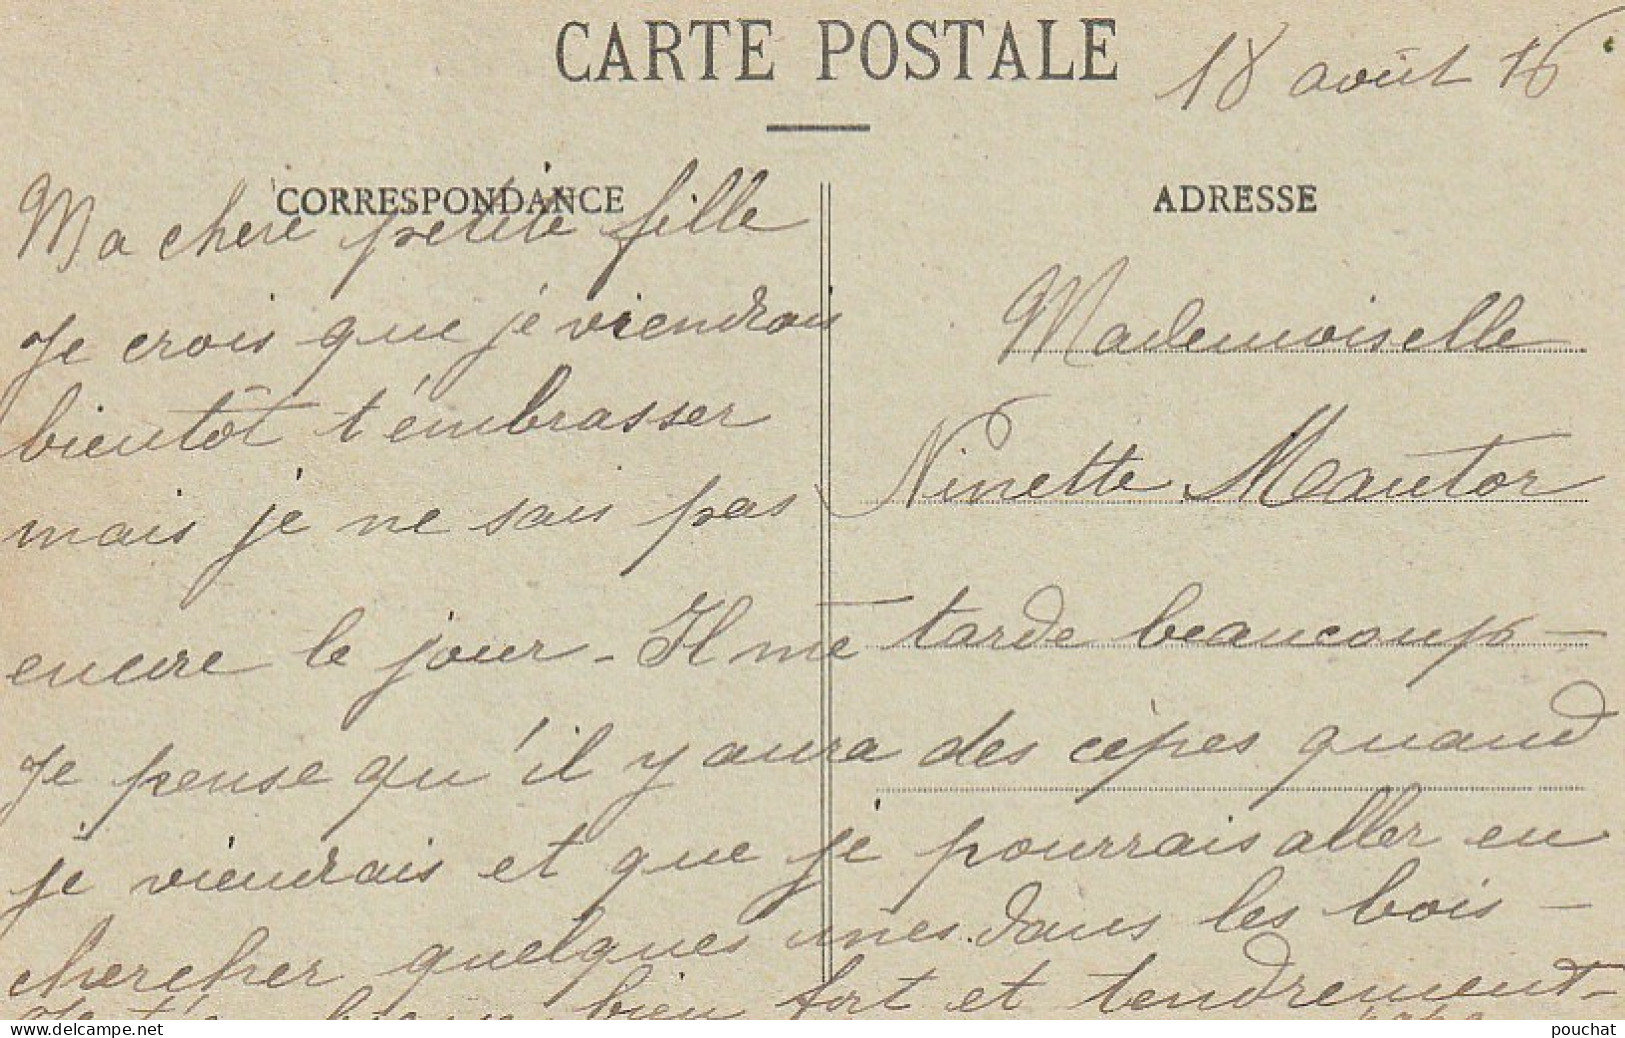 CARTE POSTALE
18 août 16
CORRESPONDANCE
ADRESSE
Ma chère petite fille
Je crois que je viendrais
bientôt t'embrasser
mais je ne sais pas
encore le jour - Il me tarde beaucoup -
Je pense qu'il y aura des cèpes quand
je viendrais et que je pourrais aller en
chercher quelques unes dans les bois -
bien fort et tendrement -
papa
Mademoiselle
Ninette Mautor
www.delcampe.net
pouchat